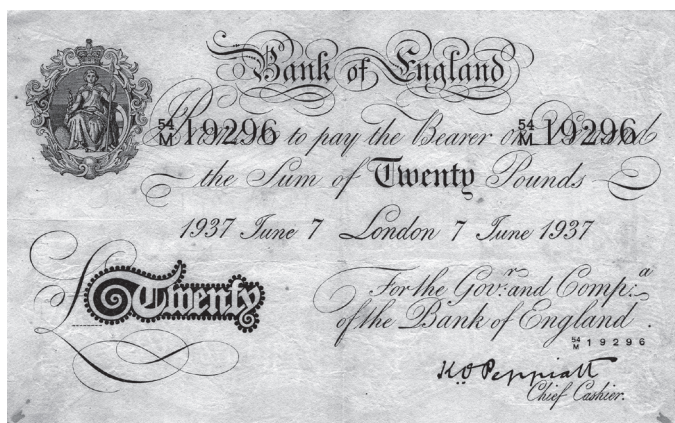 Bank of England
54/M 19296 to pay the Bearer on 54/M 19296
the Sum of Twenty Pounds
1937 June 7 London 7 June 1937
£ Twenty
For the Gov.r and Comp.a
of the Bank of England.
54/M 19296
K O Peppiatt
Chief Cashier.